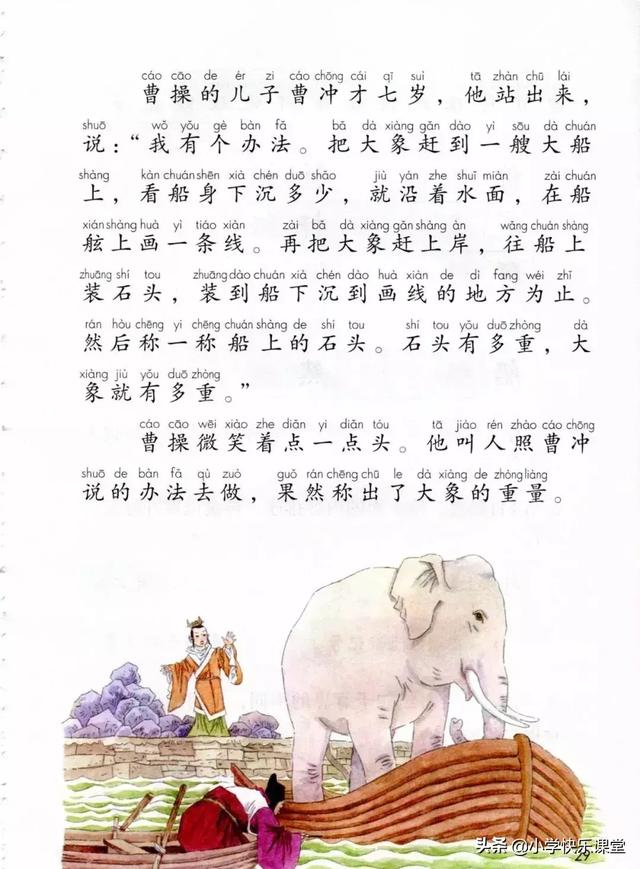 cáo cāo de ér zi cáo chōng cái qī suì tā zhàn chū lái
曹操的儿子曹冲才七岁，他站出来，
shuō wǒ yǒu gè bàn fǎ bǎ dà xiàng gǎn dào yì sōu dà chuán
说：“我有个办法。把大象赶到一艘大船
shàng kàn chuán shēn xià chén duō shǎo jiù yán zhe shuǐ miàn zài chuán
上，看船身下沉多少，就沿着水面，在船
xián shàng huà yì tiáo xiàn zài bǎ dà xiàng gǎn shàng àn wǎng chuán shàng
舷上画一条线。再把大象赶上岸，往船上
zhuāng shí tou zhuāng dào chuán xià chén dào huà xiàn de dì fang wéi zhǐ
装石头，装到船下沉到画线的地方为止。
rán hòu chēng yi chēng chuán shàng de shí tou shí tou yǒu duō zhòng dà
然后称一称船上的石头。石头有多重，大
xiàng jiù yǒu duō zhòng
象就有多重。”
cáo cāo wēi xiào zhe diǎn yi diǎn tóu tā jiào rén zhào cáo chōng
曹操微笑着点一点头。他叫人照曹冲
shuō de bàn fǎ qù zuò guǒ rán chēng chū le dà xiàng de zhòng liàng
说的办法去做，果然称出了大象的重量。
头条 @小学快乐课堂
29